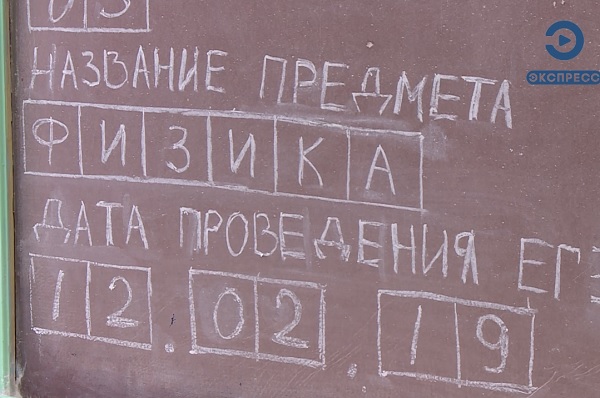 03
НАЗВАНИЕ ПРЕДМЕТА
ФИЗИКА
ДАТА ПРОВЕДЕНИЯ ЕГЭ
12.02.19
ЭКСПРЕСС